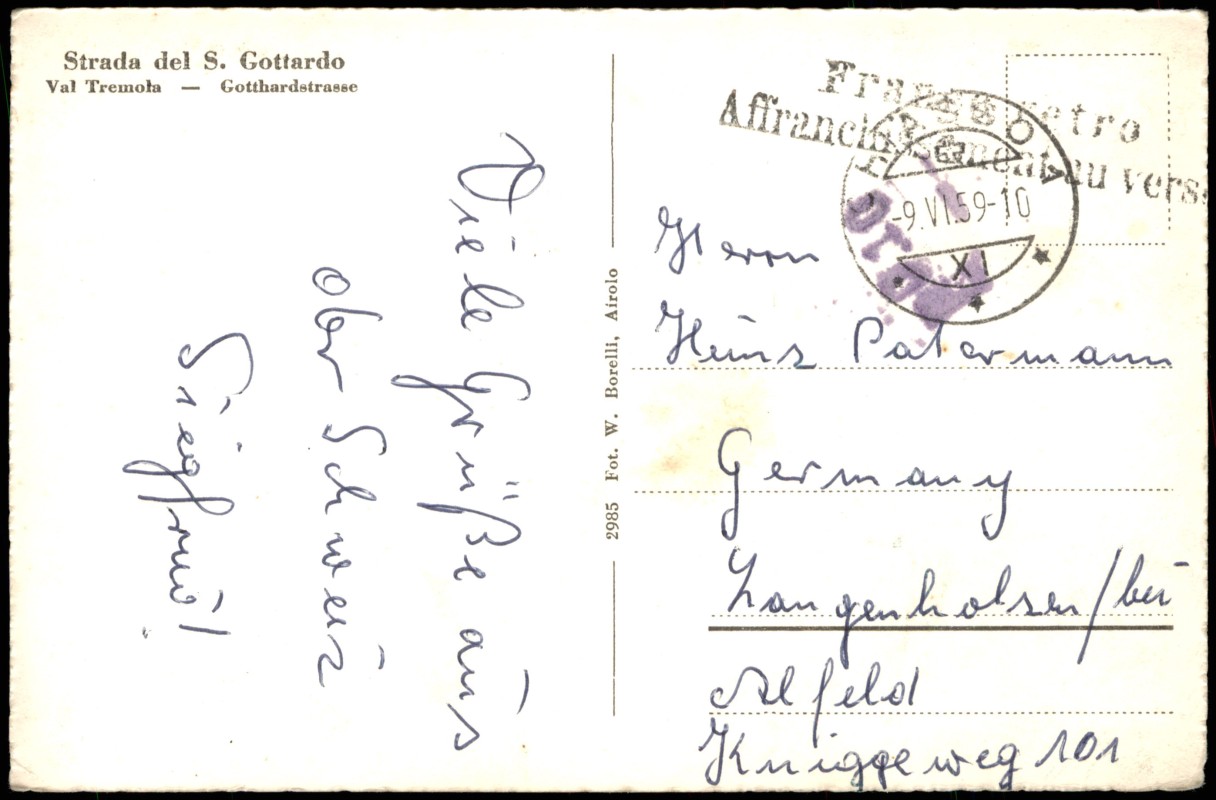 Strada del S. Gottardo
Val Tremola — Gotthardstrasse
Viele Grüße aus
der Schweiz
Siegfried!
2985 Fot. W. Borelli, Airolo
Franco retro
Affranchissement au verso
-9.VI.59-10
XI
Herrn
Heinz Patermann
Germany
Langenholsen/bei
Alfeld
Kniggeweg 101